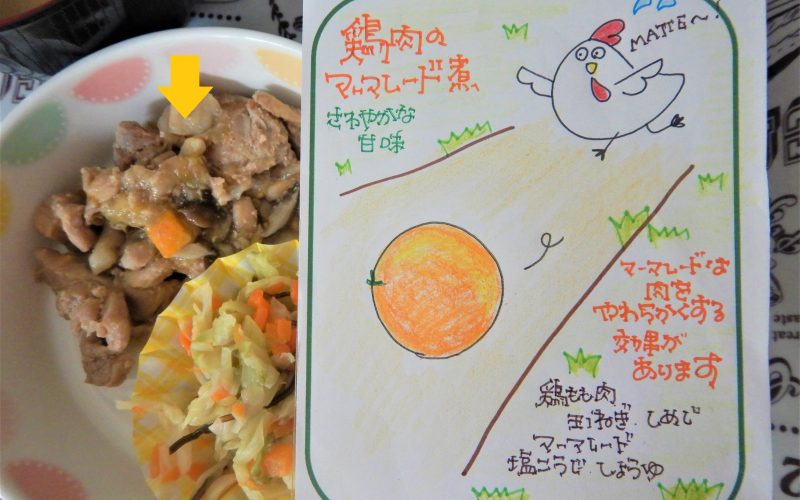 鶏肉の
マーマレード煮
さわやかな
甘味
MATTE～!
マーマレードは
肉を
やわらかくする
効果が
あります
鶏もも肉
玉ねぎ.しめじ
マーマレード
塩こうじ.しょうゆ